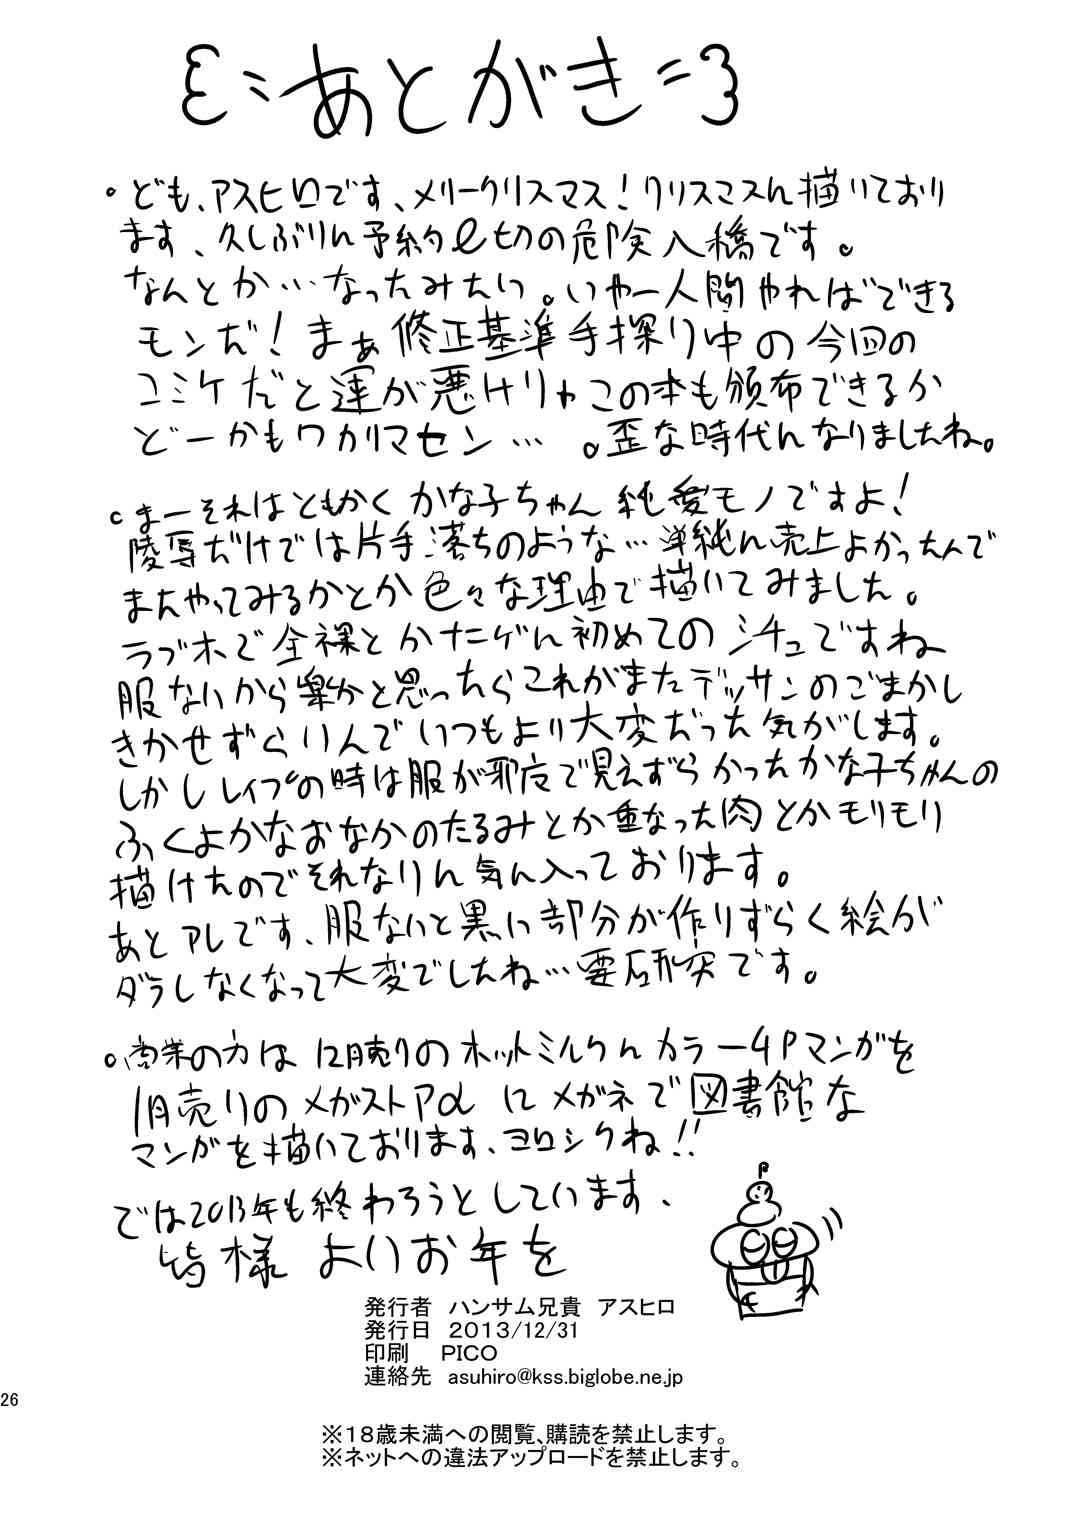 あとがき
。ども、アスヒロです、メリークリスマス!クリスマスに描いており
ます、久しぶりに予約〆切の危険入稿です。
なんとか…なったみたい。いやー人間やればできる
モンだ!まぁ修正基準手探り中の今回の
コミケだと運が悪けりゃこの本も頒布できるか
どーかもワカリマセン…。歪な時代になりましたね。
。まーそれはともかくかな子ちゃん純愛モノですよ!
陵辱だけでは片手落ちのような…単純に売上よかったんで
またやってみるかとか色々な理由で描いてみました。
ラブホで全裸とかナニゲに初めてのシチュですね
服ないから楽かと思ったらこれがまたデッサンのごまかし
きかせずらいんでいつもより大変だった気がします。
しかしレイプの時は服が邪魔で見えずらかったかな子ちゃんの
ふくよかなおなかのたるみとか重なった肉とかモリモリ
描けたのでそれなりに気に入っております。
あとアレです、服ないと黒い部分が作りずらく絵が
ダラしなくなって大変でしたね…要研究です。
。商業の方は12月売りのホットミルクにカラー4Pマンガを
1月売りのメガストアαにメガネで図書館な
マンガを描いております、ヨロシクね!!
では2013年も終わろうとしています、
皆様よいお年を
発行者 ハンサム兄貴 アスヒロ
発行日 2013/12/31
印刷 PICO
連絡先 asuhiro@kss.biglobe.ne.jp
26
※18歳未満への閲覧、購読を禁止します。
※ネットへの違法アップロードを禁止します。